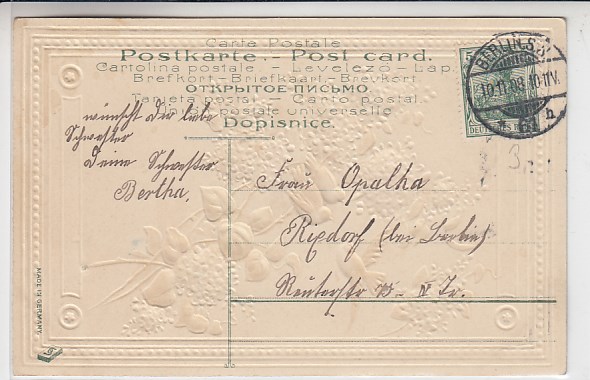 Carte Postale
Postkarte. - Post card.
Cartolina postale - Levelező - Lap.
Brefkort - Briefkaart - Brevkort
ОТКРЫТОЕ ПИСЬМО
Tarjeta postal - Carto postal
Union postale universelle
Dopisnice.
BERLIN.S.
10.11.08.10-11V.
wünscht Dir liebe
Schwester
Deine Schwester
Bertha.
Frau Opalka
Rixdorf (bei Berlin)
Reuterstr
Tr.
MADE IN GERMANY.